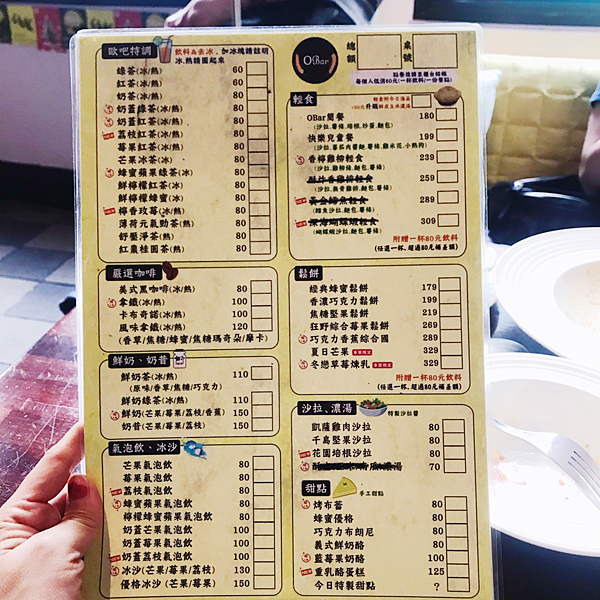 歐吧特調
飲料去冰、加冰塊請註明
冰.熱請圈起來
綠茶(冰/熱) 60
紅茶(冰/熱) 60
奶茶(冰/熱) 80
奶蓋綠茶(冰/熱) 80
奶蓋紅茶(冰/熱) 80
荔枝紅茶(冰/熱) 80
莓果紅茶(冰/熱) 80
芒果冰茶(冰) 80
蜂蜜蘋果綠茶(冰) 80
鮮檸檬紅茶(冰/熱) 80
鮮檸檬蜂蜜(冰/熱) 80
檸香玫莓(冰/熱) 80
薄荷元氣勁茶(冰/熱) 80
舒壓淨茶(熱) 80
紅棗桂圓茶(熱) 80
嚴選咖啡
美式黑咖啡(冰/熱) 80
拿鐵(冰/熱) 100
卡布奇諾(冰/熱) 100
風味拿鐵(冰/熱) 120
(香草/焦糖/蜂蜜/焦糖瑪奇朵/摩卡)
鮮奶、奶昔
鮮奶茶(冰/熱) 110
(原味/香草/焦糖/巧克力)
鮮奶綠茶(冰/熱) 110
鮮奶(芒果/莓果/荔枝/香蕉) 150
奶昔(芒果/莓果/荔枝) 150
氣泡飲、冰沙
芒果氣泡飲 80
莓果氣泡飲 80
荔枝氣泡飲 80
蜂蜜蘋果氣泡飲 80
檸檬蜂蜜蘋果氣泡飲 80
奶蓋芒果氣泡飲 100
奶蓋莓果氣泡飲 100
奶蓋荔枝氣泡飲 100
冰沙(芒果/莓果/荔枝) 130
優格冰沙(芒果/莓果) 150
OBar
總額
桌號
點餐後請至櫃台結帳
每個人低消80元(一杯飲料/一份餐點)
輕食
OBar簡餐 180
(沙拉.薯條.培根.炒蛋.麵包)
快樂兒童餐 199
(沙拉.蕃茄肉醬麵.薯條.雞米花.小熱狗)
香檸雞柳輕食 239
(沙拉.雞柳條.麵包.薯條)
酥炸香雞排輕食 259
(沙拉.無骨雞排.麵包.薯條)
黃金鱈魚輕食 289
(鱈魚沙拉.麵包.薯條)
深海蝴蝶蝦輕食 309
(蝴蝶蝦沙拉.麵包.薯條)
附贈一杯80元飲料
(任選一杯,超過80元補差額)
鬆餅
經典蜂蜜鬆餅 179
香濃巧克力鬆餅 199
焦糖堅果鬆餅 219
狂野綜合莓果鬆餅 269
巧克力香蕉綜合國 289
夏日芒果 季節限定 329
冬戀草莓煉乳 季節限定 329
附贈一杯80元飲料
(任選一杯,超過80元補差額)
沙拉、濃湯
特製沙拉醬
凱薩雞肉沙拉 80
千島堅果沙拉 80
花園培根沙拉 80
濃湯 70
甜點
手工甜點
烤布蕾 80
蜂蜜優格 80
巧克力布朗尼 80
義式鮮奶酪 80
藍莓果奶酪 100
重乳酪蛋糕 125
今日特製甜點 ?